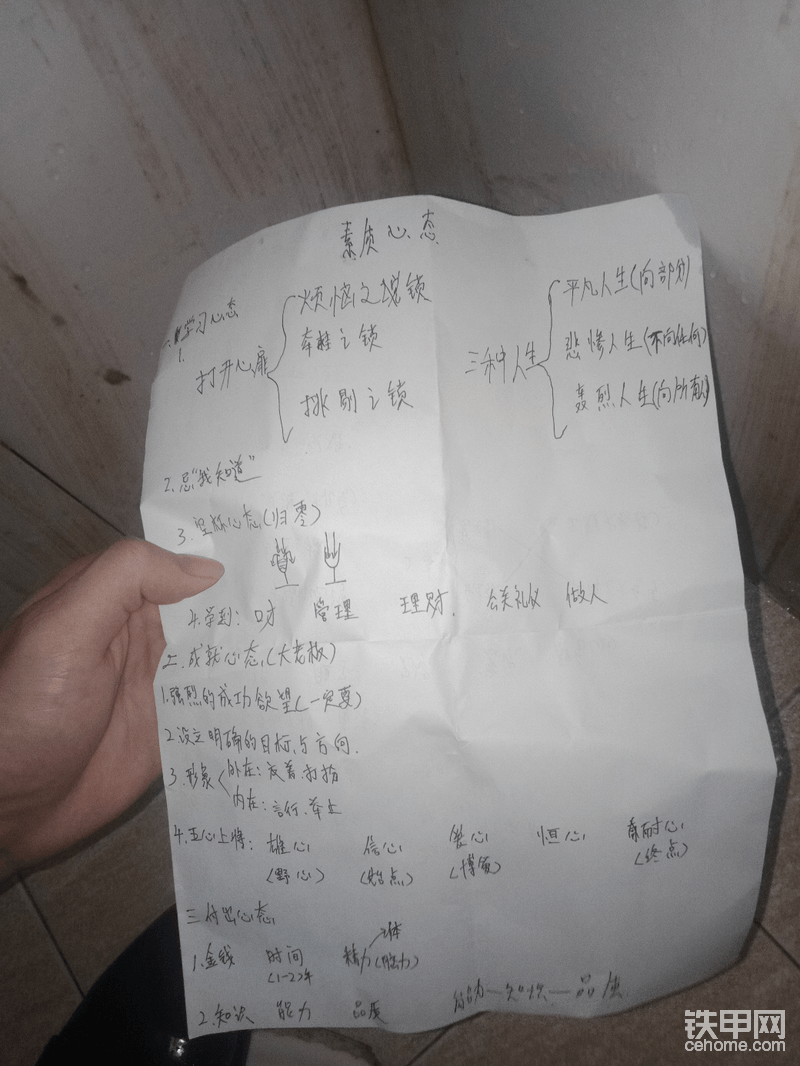 素质心态
一.学习心态
1.
打开心扉
烦恼之锁
牵挂之锁
排剔之锁
三种人生
平凡人生(向部分)
悲惨人生(不向任何)
轰烈人生(向所有)
2.忌"我知道"
3.空杯心态(归零)
4.学到: 口才 管理 理财. 公关礼仪 做人
二.成就心态(大老板)
1.强烈的成功欲望(一定要)
2.设立明确的目标与方向.
3.形象
外在:衣着.打扮
内在:言行.举止
4.五心上将: 雄心 信心 爱心 恒心 耐心
(野心) (始点) (博爱) (终点)
三付出心态
1.金钱 时间 精力(脑力)
体
(1-2)年
2.知识 能力 品质
能力—知识—品质
铁甲网
cehome.com